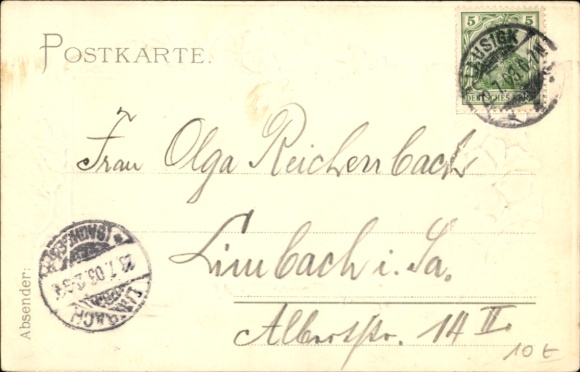 POSTKARTE.
5 5
DEUTSCHES
LAUSIGK
7.03.6-7N.
Frau Olga Reichenbach
Limbach i. Sa.
Albertstr. 14 II.
LIMBACH
(SACHSEN)
.7.03.
Absender:
10 t